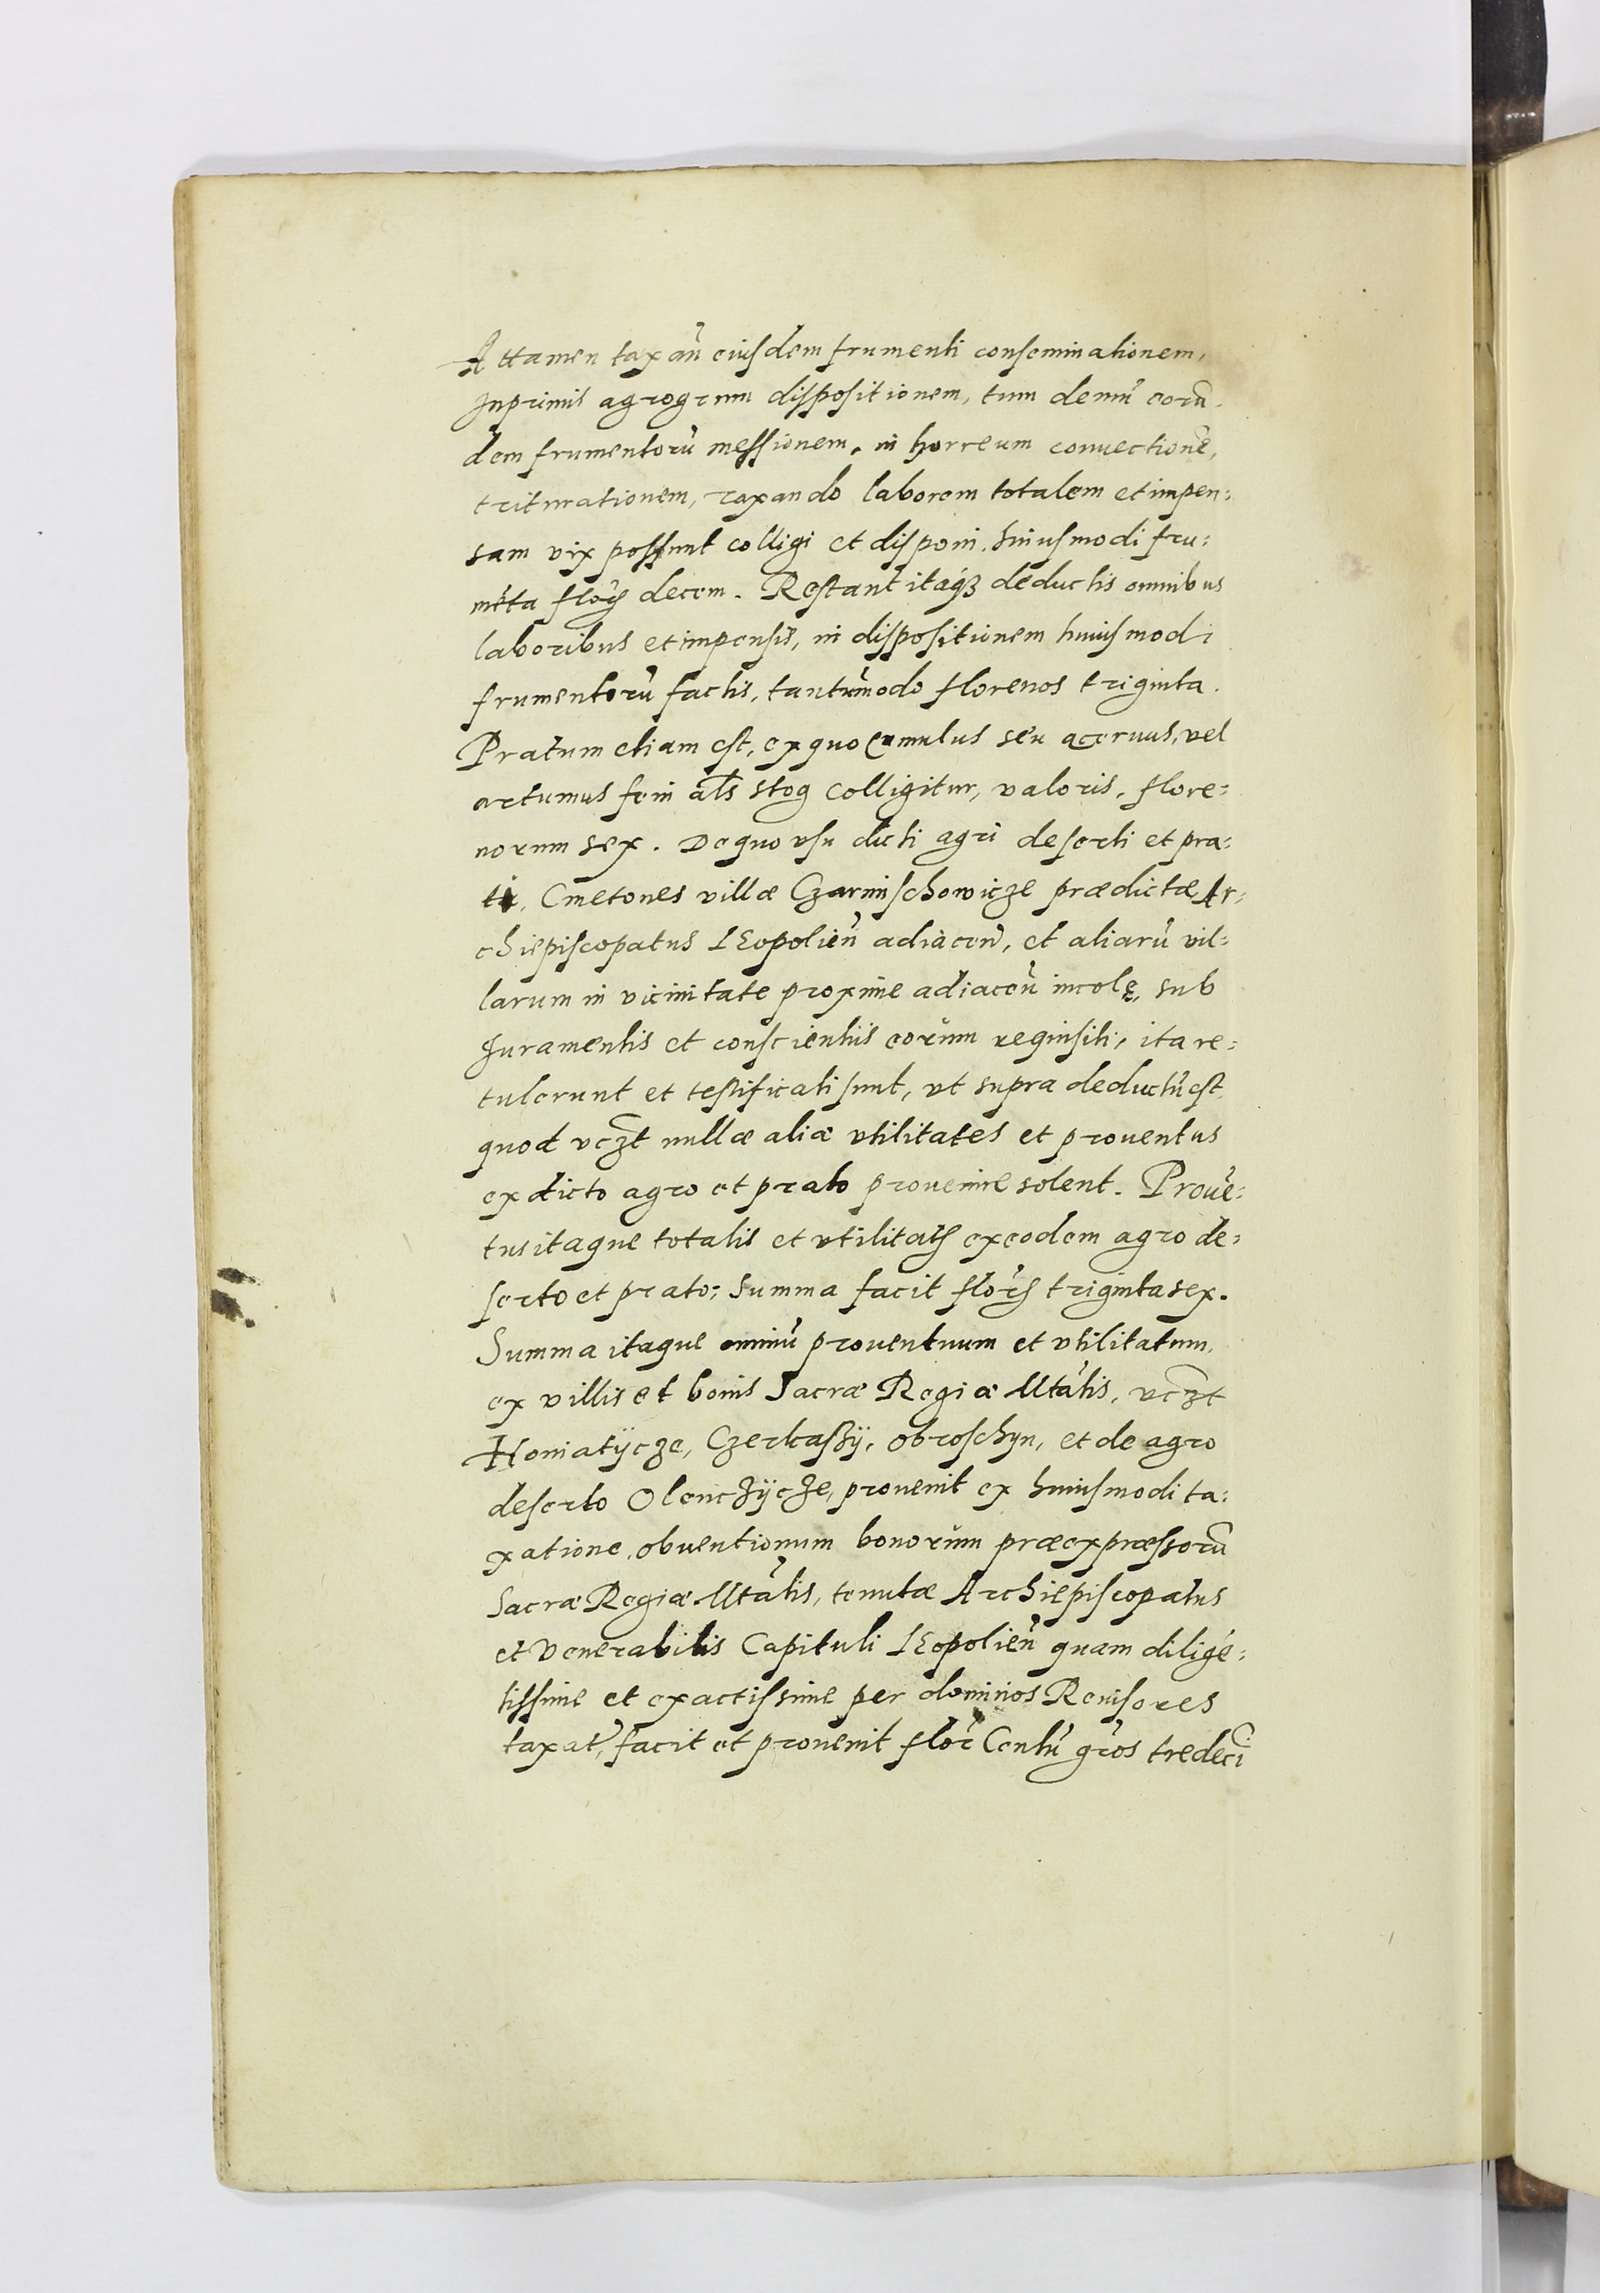 Attamen taxan̄ eiusdem frumenti conseminationem,
Inprimis agrogrum dispositionem, tum demū eorū
dem frumentorū messionem, in horreum conuectionē,
triturationem, taxando laborem totalem et impen:
sam vix possunt colligi et disponi, huiusmodi fru:
mēta floꝝ decem. Restant itaqꝫ deductis omnibus
laboribus et impensis, in dispositionem huiusmodi
frumentorū factis, tantūmodo florenos triginta.
Pratum etiam est, ex quo Cumulus seu aceruus, vel
artumus feni al̄s stog colligitur, valoris, flore:
norum sex. De quo vsu dicti agri deserti et pra:
ti, Cmetones villæ Czarnischowicze prædictæ Ar:
chiepiscopatus LEopolien̄ adiacen̄, et aliarū vil:
larum in vicinitate proxime adiacen̄ incolę, sub
Iuramentis et conscientiis eorum reqinsiti, ita re:
tulerunt et testificati sunt, vt supra deductū est
quod vcꝫt nullæ aliæ vtilitates et prouentus
ex dicto agro et prato prouenire solent. Prouē:
tus itaque totalis et vtilitatꝭ ex eodem agro de:
serto et prato; Summa facit florꝭ triginta sex.
Summa itaque omniū prouentuum et vtilitatum,
ex villis et bonis Sacræ Regiæ Mtātis, vcꝫt
Honiatÿcze, Czerkaßÿ, Obroschyn, et de agro
deserto Olenczÿcze, prouenit ex huiusmodi ta:
xatione, obuentionum bonorum præexpræssorū
Sacræ Regiæ Mtātis, tenutæ Archiepiscopatus
et Venerabilis Capituli LEopolien̄ quam diligē:
tissime et exactissime per dominos Reuisores
taxat̄, facit et prouenit flor̄ Centū gr̄os tredecī